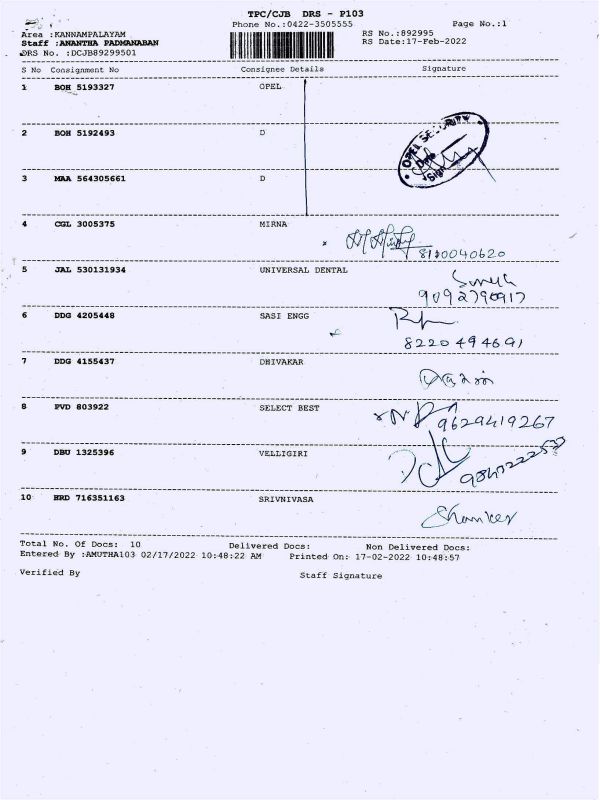 TPC/CJB DRS - P103
Phone No.:0422-3505555 Page No.:1
Area :KANNAMPALAYAM RS No.:892995
Staff :ANANTHA PADMANABAN RS Date:17-Feb-2022
DRS No. :DCJB89299501
S No Consignment No Consignee Details Signature
1 BOH 5193327 OPEL
2 BOH 5192493 D
OPEL SECURITY
Date
Sign
3 MAA 564305661 D
4 CGL 3005375 MIRNA
x
8130040620
5 JAL 530131934 UNIVERSAL DENTAL
Suresh
9092790917
6 DDG 4205448 SASI ENGG
8220494691
7 DDG 4155437 DHIVAKAR
8 PVD 803922 SELECT BEST
9629419267
9 DBU 1325396 VELLIGIRI
10 BRD 716351163 SRIVNIVASA
Shanker
Total No. Of Docs: 10 Delivered Docs: Non Delivered Docs:
Entered By :AMUTHA103 02/17/2022 10:48:22 AM Printed On: 17-02-2022 10:48:57
Verified By Staff Signature